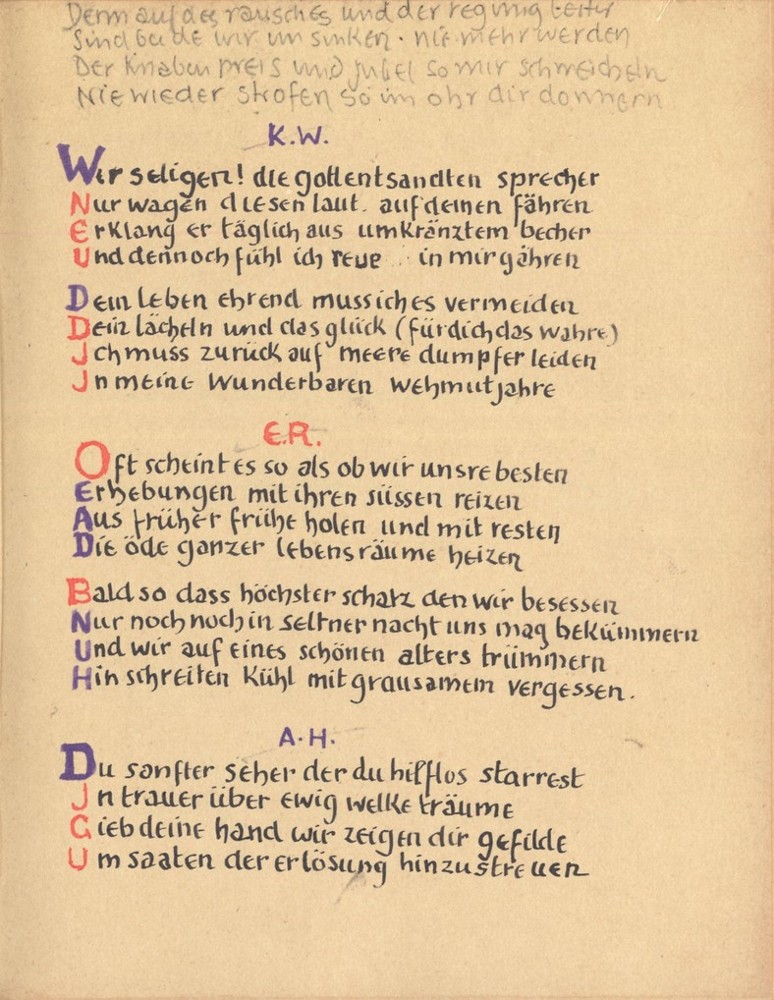 Denn auf des rausches und der regung leiter
Sind beide wir im sinken. nie mehr werden
Der Knaben preis und jubel so mir schmeicheln
Nie wieder strofen so im ohr dir donnern
K.W.
Wir seligen! die gottentsandten sprecher
Nur wagen diesen laut. auf deinen fähren
Erklang er täglich aus umkränztem becher
Und dennoch fühl ich reue in mir gähren
Dein leben ehrend muss ich es vermeiden
Dein lächeln und das glück (für dich das wahre)
Ich muss zurück auf meere dumpfer leiden
In meine wunderbaren wehmutjahre
E.R.
Oft scheint es so als ob wir unsre besten
Erhebungen mit ihren süssen reizen
Aus früher frühe holen und mit resten
Die öde ganzer lebensräume heizen
Bald so dass höchster schatz den wir besessen
Nur noch noch in seltner nacht uns mag bekümmern
Und wir auf eines schönen alters trümmern
Hin schreiten kühl mit grausamem vergessen.
A.H.
Du sanfter seher der du hilflos starrest
In trauer über ewig welke träume
Gieb deine hand wir zeigen dir gefilde
Um saaten der erlösung hinzustreuen